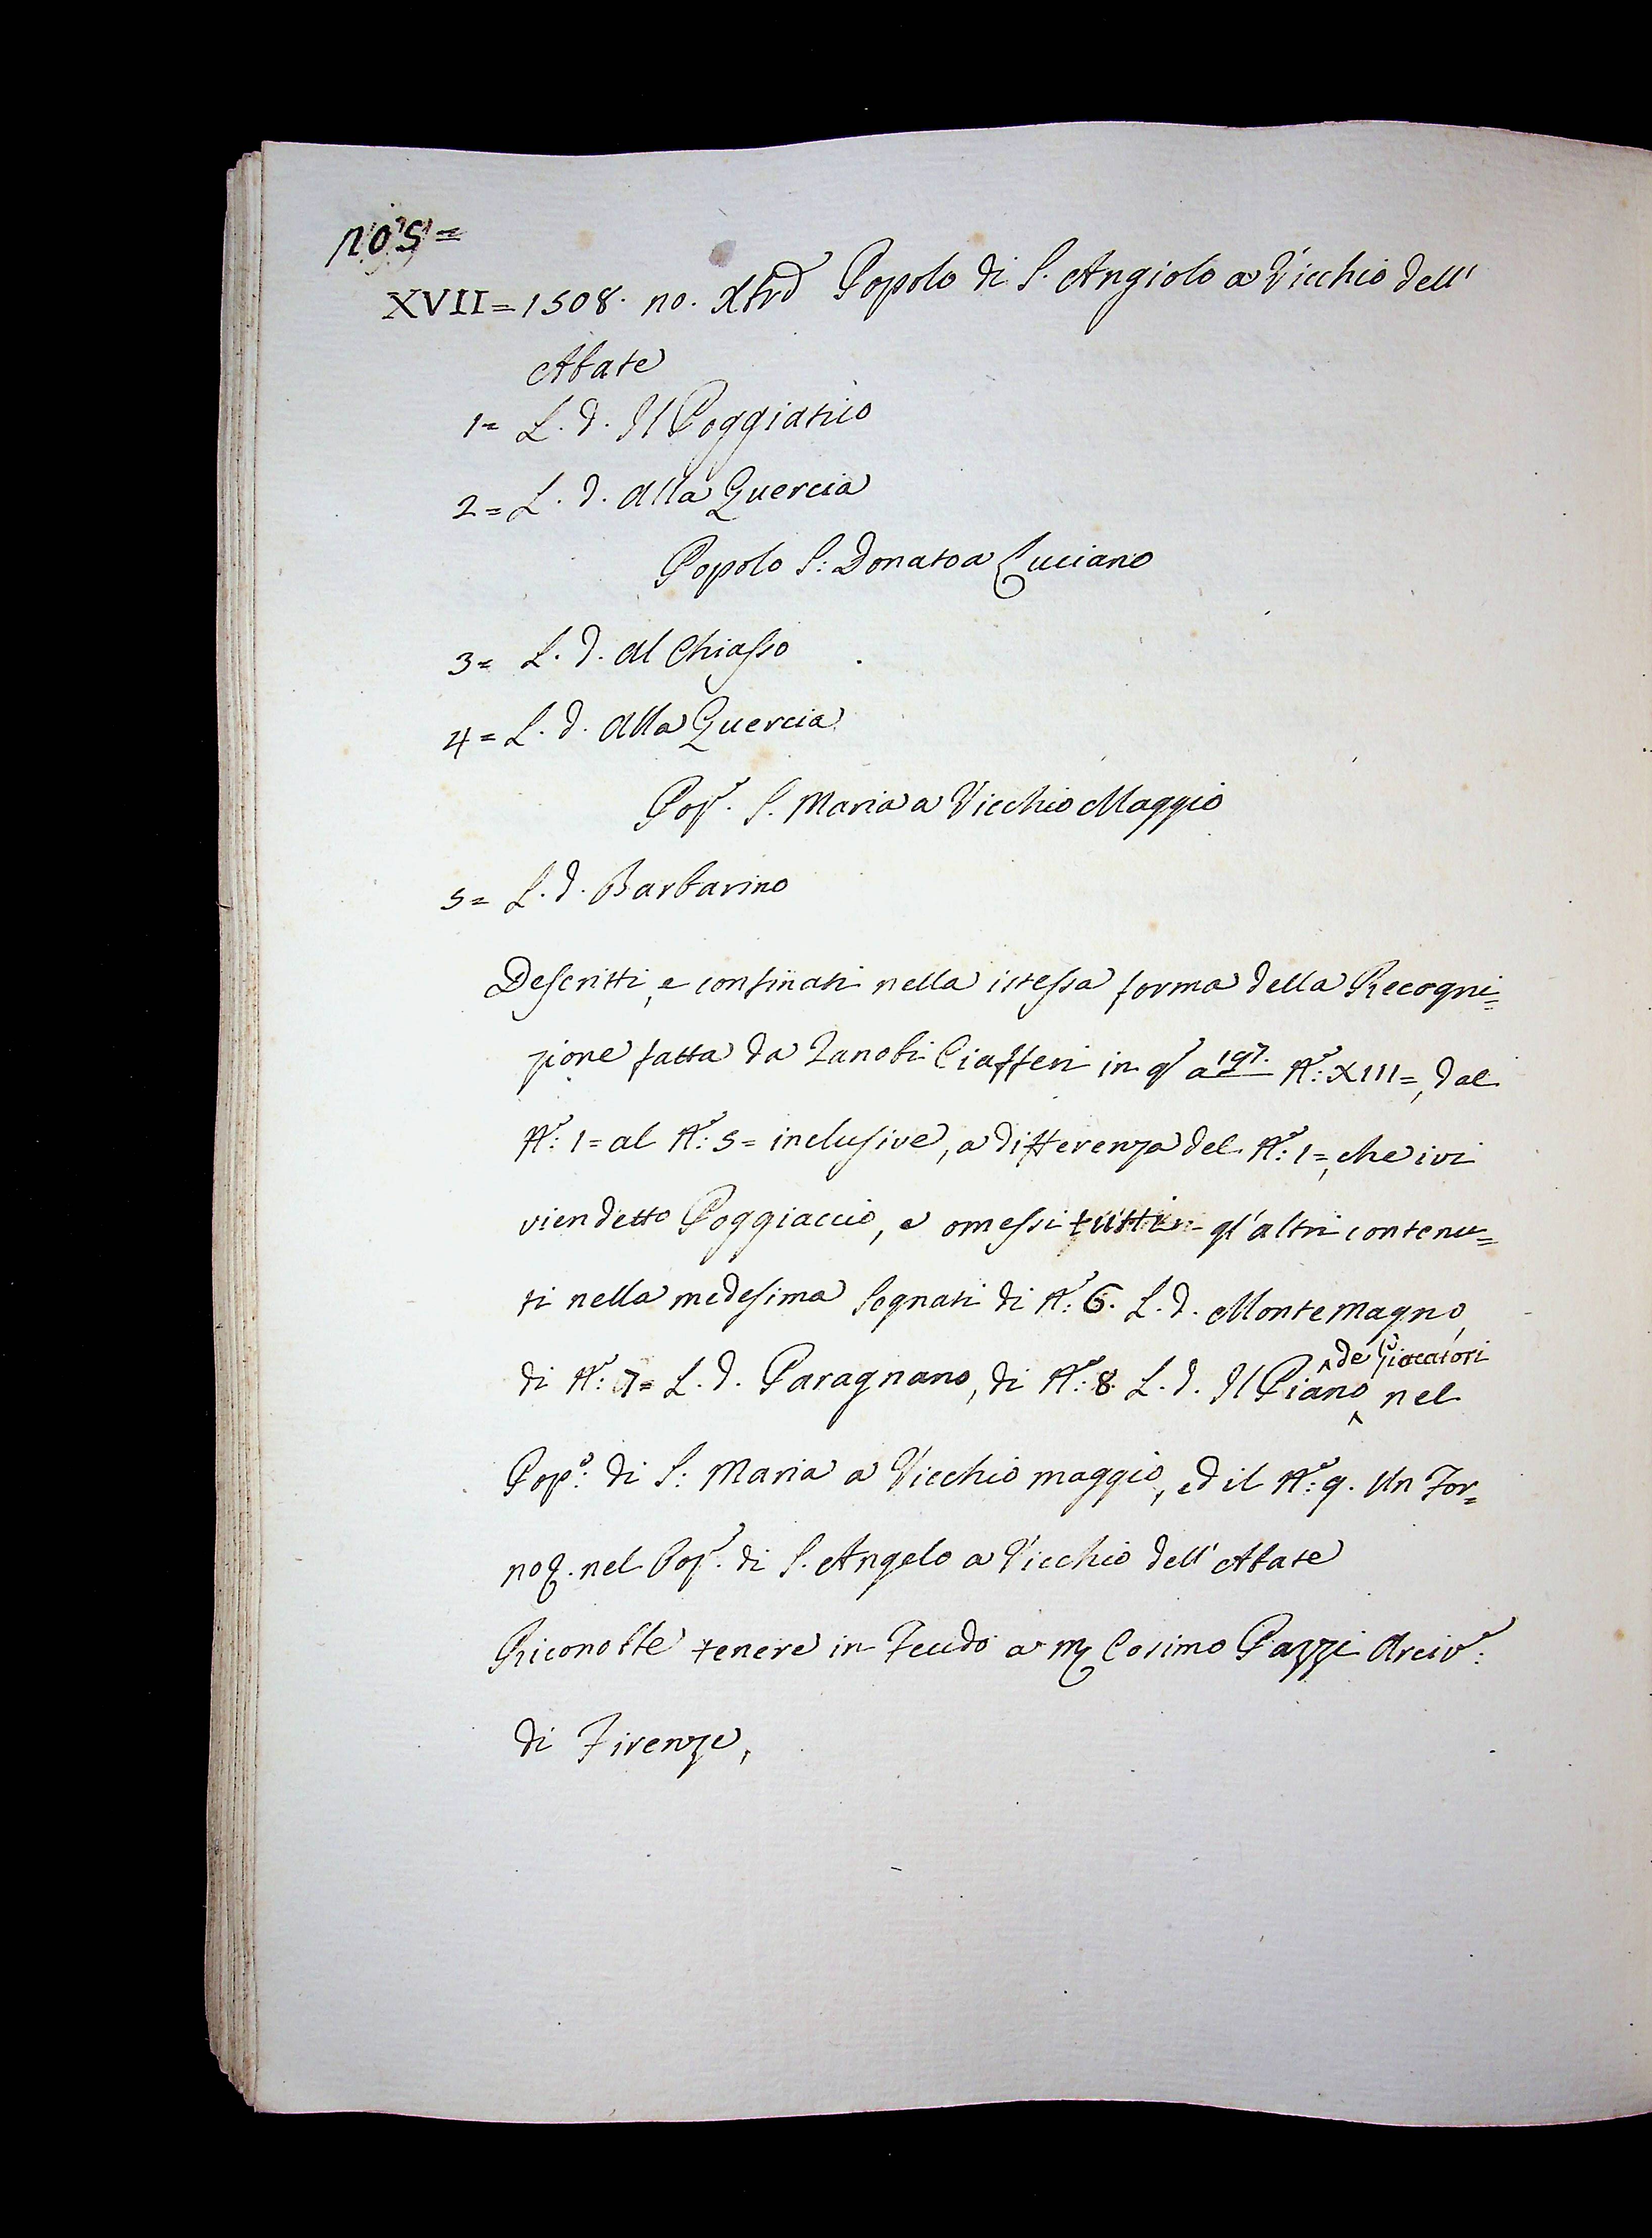 XVII = 1508. no. Xbre Popolo di S. Angiolo a Vicchio dell'
Abate
1= L. d. Il Poggiatico
2= L. d. Alla Quercia
Popolo S: Donato a Luciano
3= L. d. Al Chiasso
4= L. d. Alla Quercia
Pop. S. Maria a Vicchio Maggio
5= L. d. Barbarino
Descritti, e confinati nella istessa forma della Recogni=
zione fatta da Zanobi Ciafferi in qo a 197. No: XIII=, dal
No: 1= al No: 5= inclusive, a differenza del No: 1=, che ivi
vien detto Poggiaccio, e omessi tutti gl'altri contenu=
ti nella medesima segnati di No: 6. L. d. Montemagno,
di No: 7= L. d. Paragnano, di No: 8. L. d. Il Piano de Giocatori nel
Popo: di S: Maria a Vicchio maggio, ed il No: 9. Un For=
no &. nel Pop. di S. Angelo a Vicchio dell'Abate
Riconobbe tenere in Feudo a M. Cosimo Pazzi Arciv:
di Firenze,